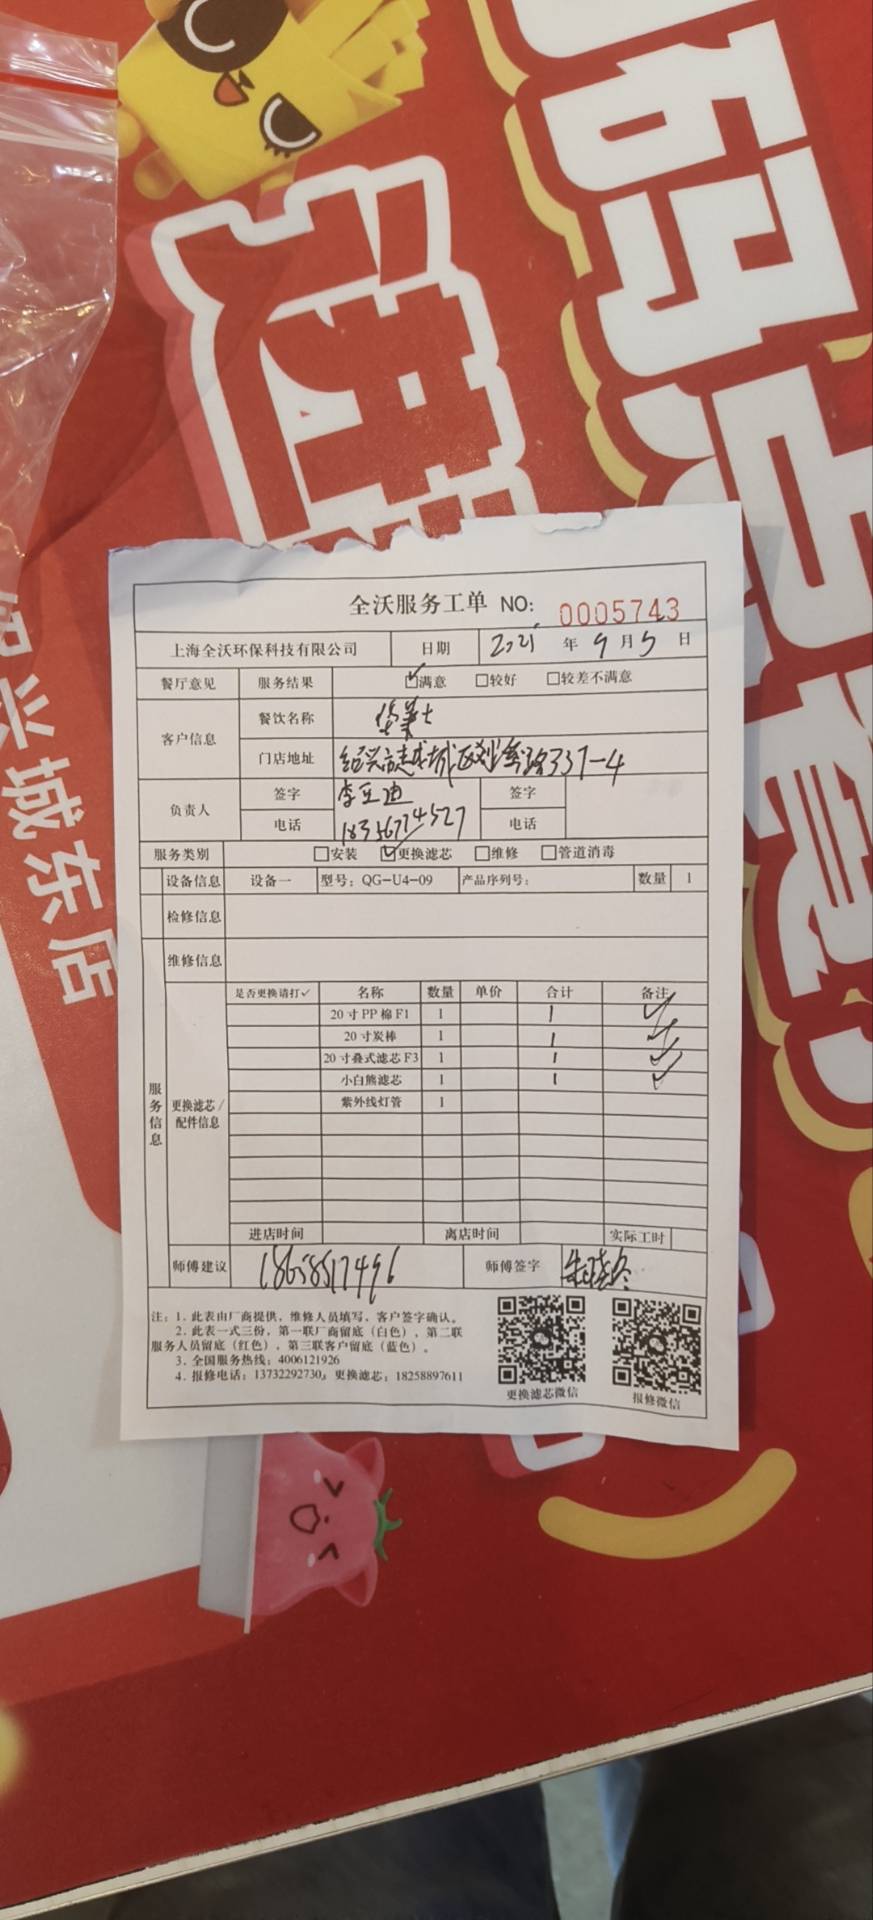 绍兴城东店
全沃服务工单 NO: 0005743
上海全沃环保科技有限公司 日期 2021年9月5日
餐厅意见 服务结果 ☑满意 □较好 □较差不满意
客户信息 餐饮名称 华莱士
门店地址 绍兴市越城区 路337-4
负责人 签字 李立迪 签字
电话 18356774527 电话
服务类别 □安装 ☑更换滤芯 □维修 □管道消毒
设备信息 设备一 型号：QG-U4-09 产品序列号： 数量 1
检修信息
维修信息
服务信息
更换滤芯/配件信息
是否更换请打✓ 名称 数量 单价 合计 备注
20寸PP棉F1 1 1 ✓
20寸炭棒 1 1 ✓
20寸叠式滤芯F3 1 1 ✓
小白熊滤芯 1 1 ✓
紫外线灯管 1
进店时间 离店时间 实际工时
师傅建议 18658517496 师傅签字
注：1. 此表由厂商提供，维修人员填写，客户签字确认。
2. 此表一式三份，第一联厂商留底（白色），第二联
服务人员留底（红色），第三联客户留底（蓝色）。
3. 全国服务热线：4006121926
4. 报修电话：13732292730，更换滤芯：18258897611
更换滤芯微信 报修微信